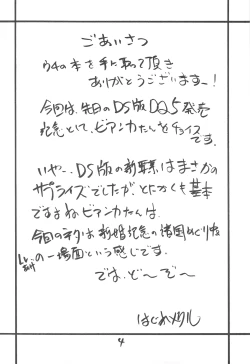 ごあいさつ
ウチの本を手に取って頂き
ありがとうございますー!
今回は、先日のDS版DQ5発売
記念として、ビアンカたんをチョイス
です。
いやー、DS版の新要素はまさかの
サプライズでしたが、とにかくも基本
ですよねビアンカたんは。
今回のネタは新婚記念の諸国めぐり後
の一場面という感じです。
では、ど〜ぞ〜
はじめ
4